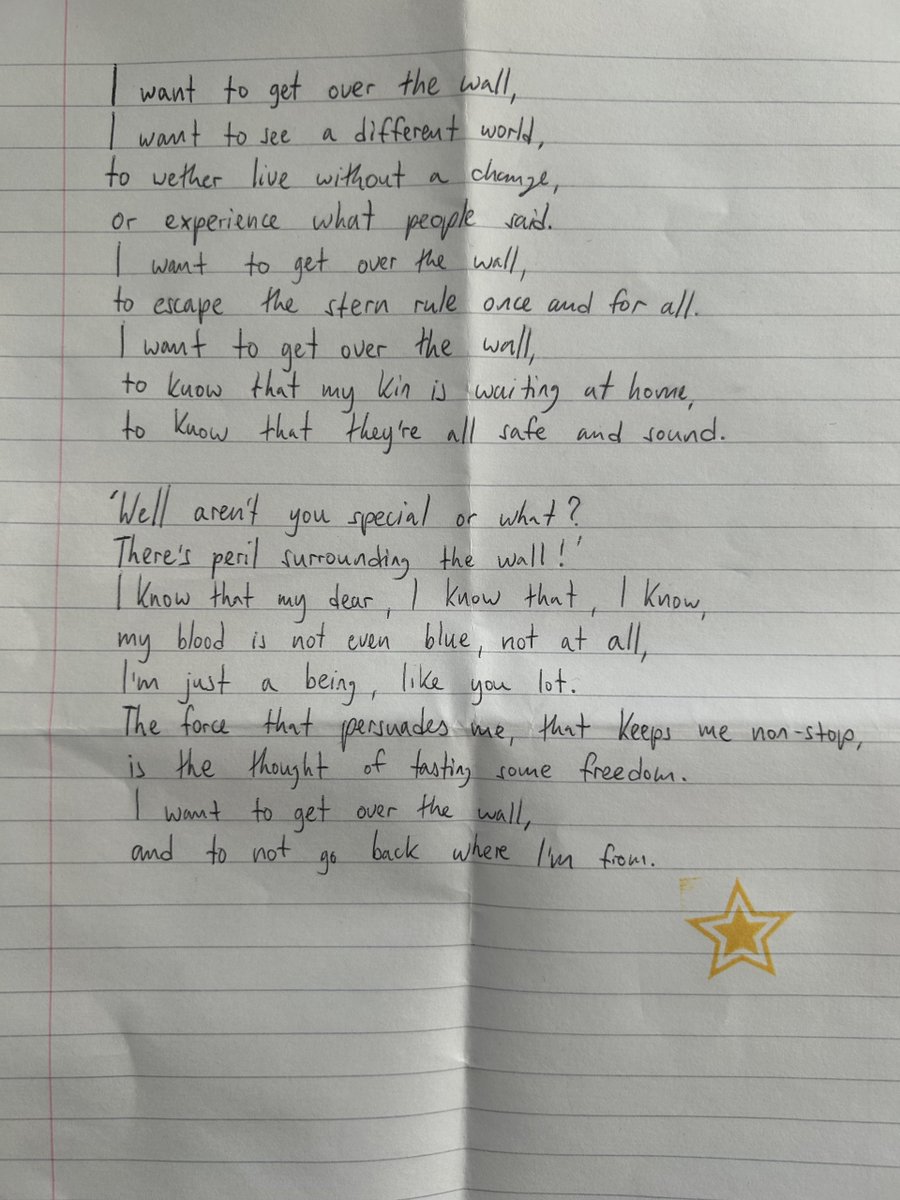 I want to get over the wall,
I want to see a different world,
to wether live without a change,
or experience what people said.
I want to get over the wall,
to escape the stern rule once and for all.
I want to get over the wall,
to know that my kin is waiting at home,
to know that they're all safe and sound.
'Well aren't you special or what?
There's peril surrounding the wall!'
I know that my dear, I know that, I know,
my blood is not even blue, not at all,
I'm just a being, like you lot.
The force that persuades me, that keeps me non-stop,
is the thought of tasting some freedom.
I want to get over the wall,
and to not go back where I'm from.